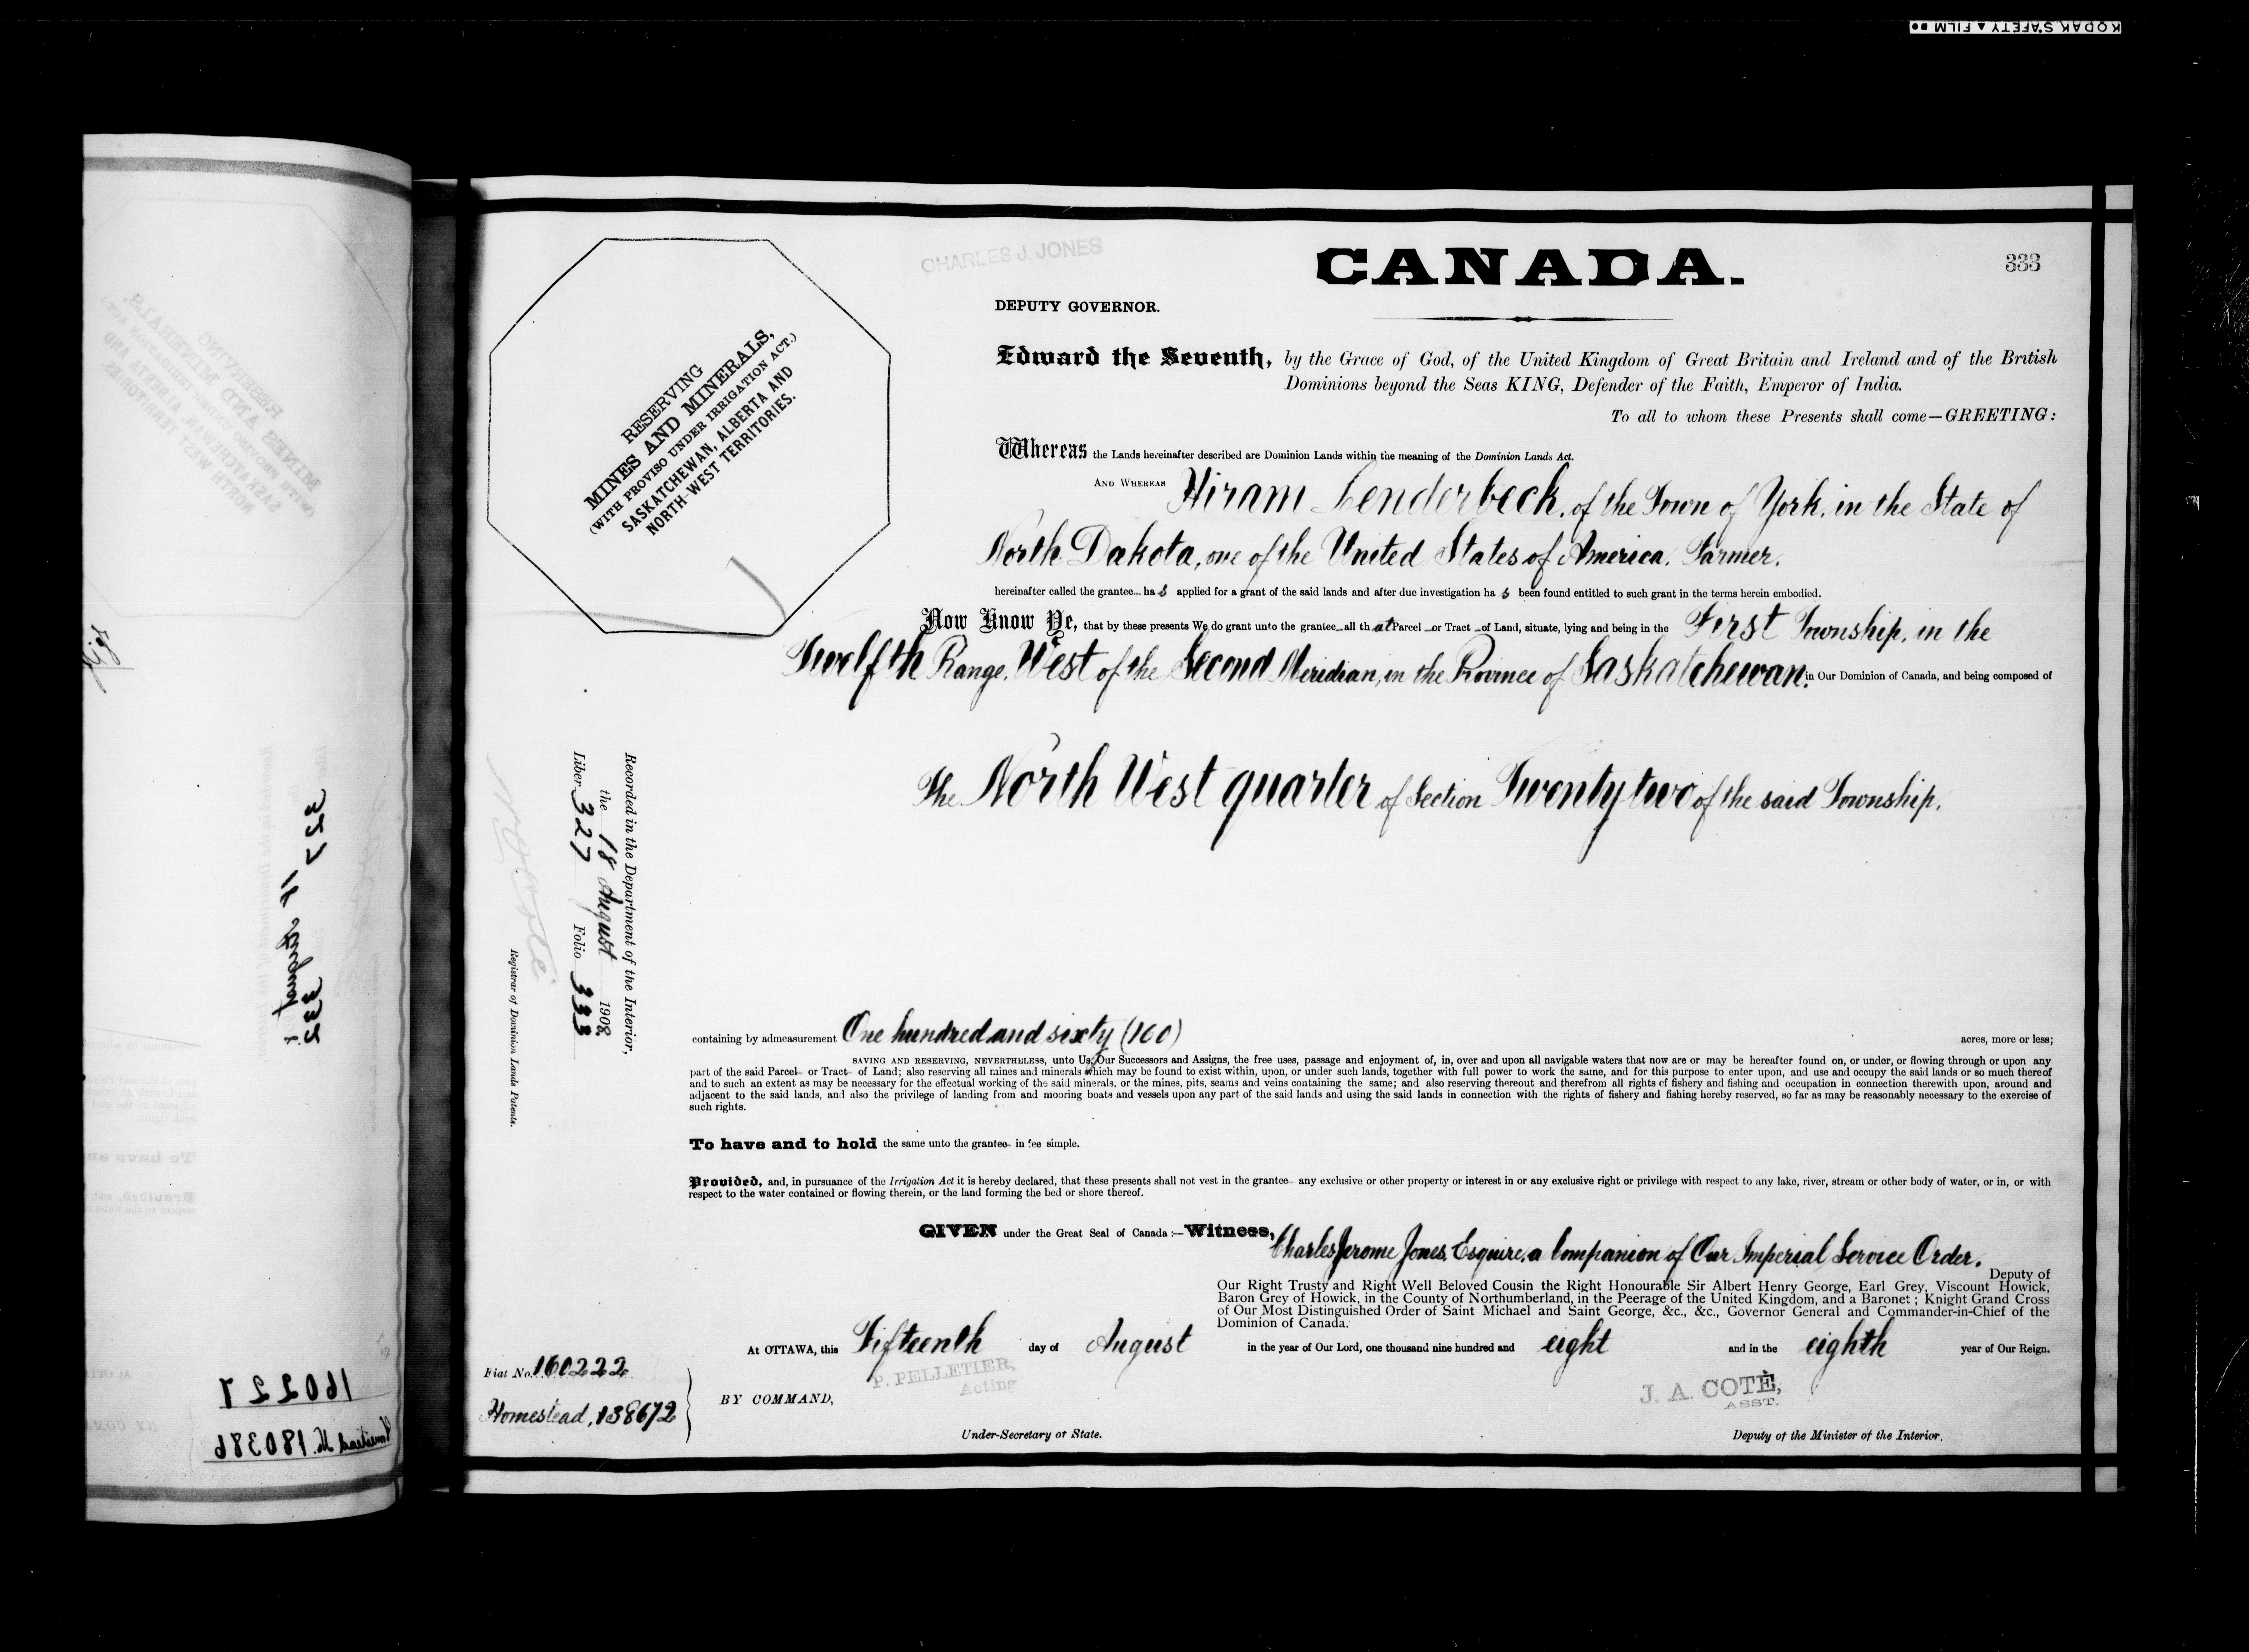 KODAK SAFETY ▲ FILM
CHARLES J. JONES
CANADA.
333
DEPUTY GOVERNOR.
Edward the Seventh, by the Grace of God, of the United Kingdom of Great Britain and Ireland and of the British
Dominions beyond the Seas KING, Defender of the Faith, Emperor of India.
To all to whom these Presents shall come—GREETING:
RESERVING
MINES AND MINERALS,
(WITH PROVISO UNDER IRRIGATION ACT.)
SASKATCHEWAN, ALBERTA AND
NORTH-WEST TERRITORIES.
Whereas the Lands hereinafter described are Dominion Lands within the meaning of the Dominion Lands Act.
AND WHEREAS Hiram Lenderbeck, of the Town of York, in the State of
North Dakota, one of the United States of America, Farmer.
hereinafter called the grantee... has applied for a grant of the said lands and after due investigation has been found entitled to such grant in the terms herein embodied.
Now Know Ye, that by these presents We do grant unto the grantee all that Parcel or Tract of Land, situate, lying and being in the First Township, in the
Twelfth Range, West of the Second Meridian, in the Province of Saskatchewan, in Our Dominion of Canada, and being composed of
The North West quarter of Section Twenty two of the said Township.
Recorded in the Department of the Interior,
the 18 August 1908
Liber 327 Folio 333
N O Coté
Registrar of Dominion Lands Patents.
containing by admeasurement One hundred and sixty (160) acres, more or less;
SAVING AND RESERVING, NEVERTHELESS, unto Us, Our Successors and Assigns, the free uses, passage and enjoyment of, in, over and upon all navigable waters that now are or may be hereafter found on, or under, or flowing through or upon any
part of the said Parcel or Tract of Land; also reserving all mines and minerals which may be found to exist within, upon, or under such lands, together with full power to work the same, and for this purpose to enter upon, and use and occupy the said lands or so much thereof
and to such an extent as may be necessary for the effectual working of the said minerals, or the mines, pits, seams and veins containing the same; and also reserving thereout and therefrom all rights of fishery and fishing and occupation in connection therewith upon, around and
adjacent to the said lands, and also the privilege of landing from and mooring boats and vessels upon any part of the said lands and using the said lands in connection with the rights of fishery and fishing hereby reserved, so far as may be reasonably necessary to the exercise of
such rights.
To have and to hold the same unto the grantee in fee simple.
Provided, and, in pursuance of the Irrigation Act it is hereby declared, that these presents shall not vest in the grantee any exclusive or other property or interest in or any exclusive right or privilege with respect to any lake, river, stream or other body of water, or in, or with
respect to the water contained or flowing therein, or the land forming the bed or shore thereof.
GIVEN under the Great Seal of Canada:—Witness, Charles Jerome Jones, Esquire, a Companion of Our Imperial Service Order.
Deputy of
Our Right Trusty and Right Well Beloved Cousin the Right Honourable Sir Albert Henry George, Earl Grey, Viscount Howick,
Baron Grey of Howick, in the County of Northumberland, in the Peerage of the United Kingdom, and a Baronet; Knight Grand Cross
of Our Most Distinguished Order of Saint Michael and Saint George, &c., &c., Governor General and Commander-in-Chief of the
Dominion of Canada.
At OTTAWA, this Fifteenth day of August in the year of Our Lord, one thousand nine hundred and eight and in the eighth year of Our Reign.
Fiat No. 160222
Homestead, 138672
BY COMMAND,
P. PELLETIER,
Acting
Under-Secretary of State.
J. A. COTÉ,
ASST.
Deputy of the Minister of the Interior.